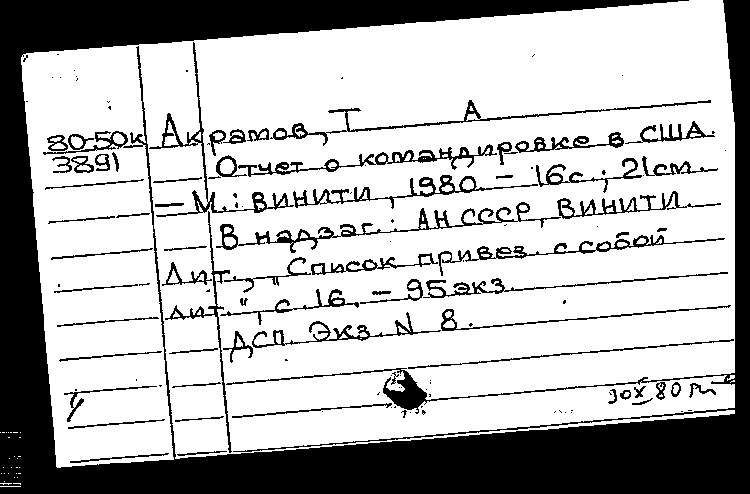 80-50к Акрамов, Т А
3891 Отчет о командировке в США.
— М.: ВИНИТИ, 1980. – 16с.; 21см.
В надзаг.: АН СССР, ВИНИТИ.
Лит., „Список привез. с собой
лит.", с. 16. – 95 экз.
ДСП. Экз. N 8.
30X 80